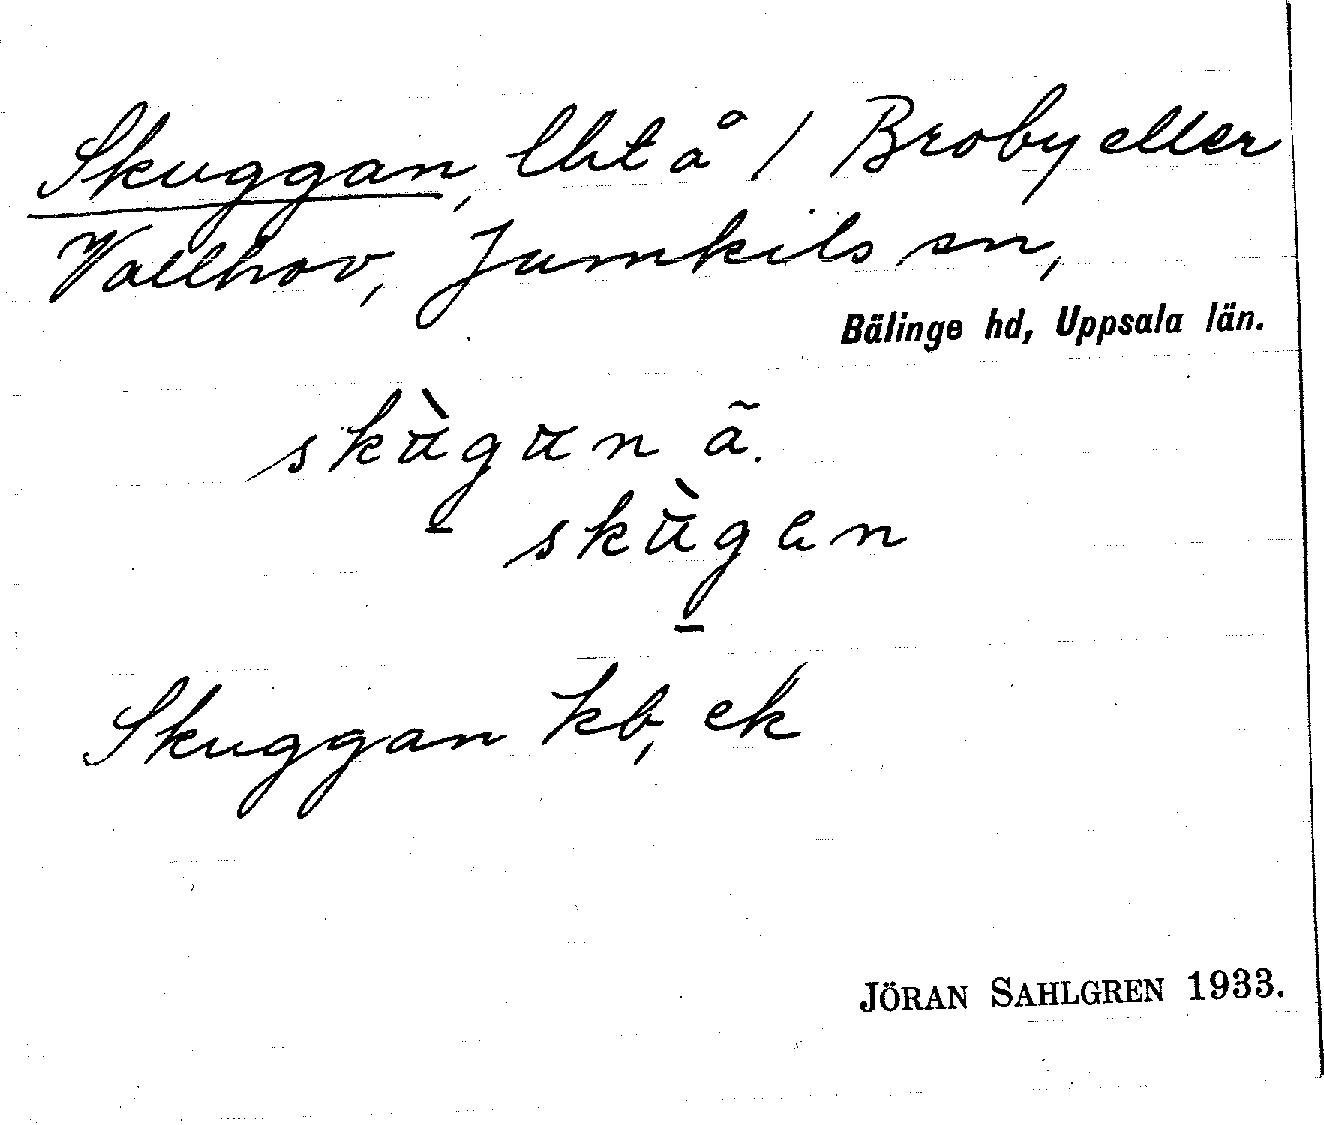 Skuggan, lht å / Broby eller
Vallhov, Jumkils sn,
Bälinge hd, Uppsala län.
skùgan ã.
skùgan
Skuggan kb, ek
JÖRAN SAHLGREN 1933.